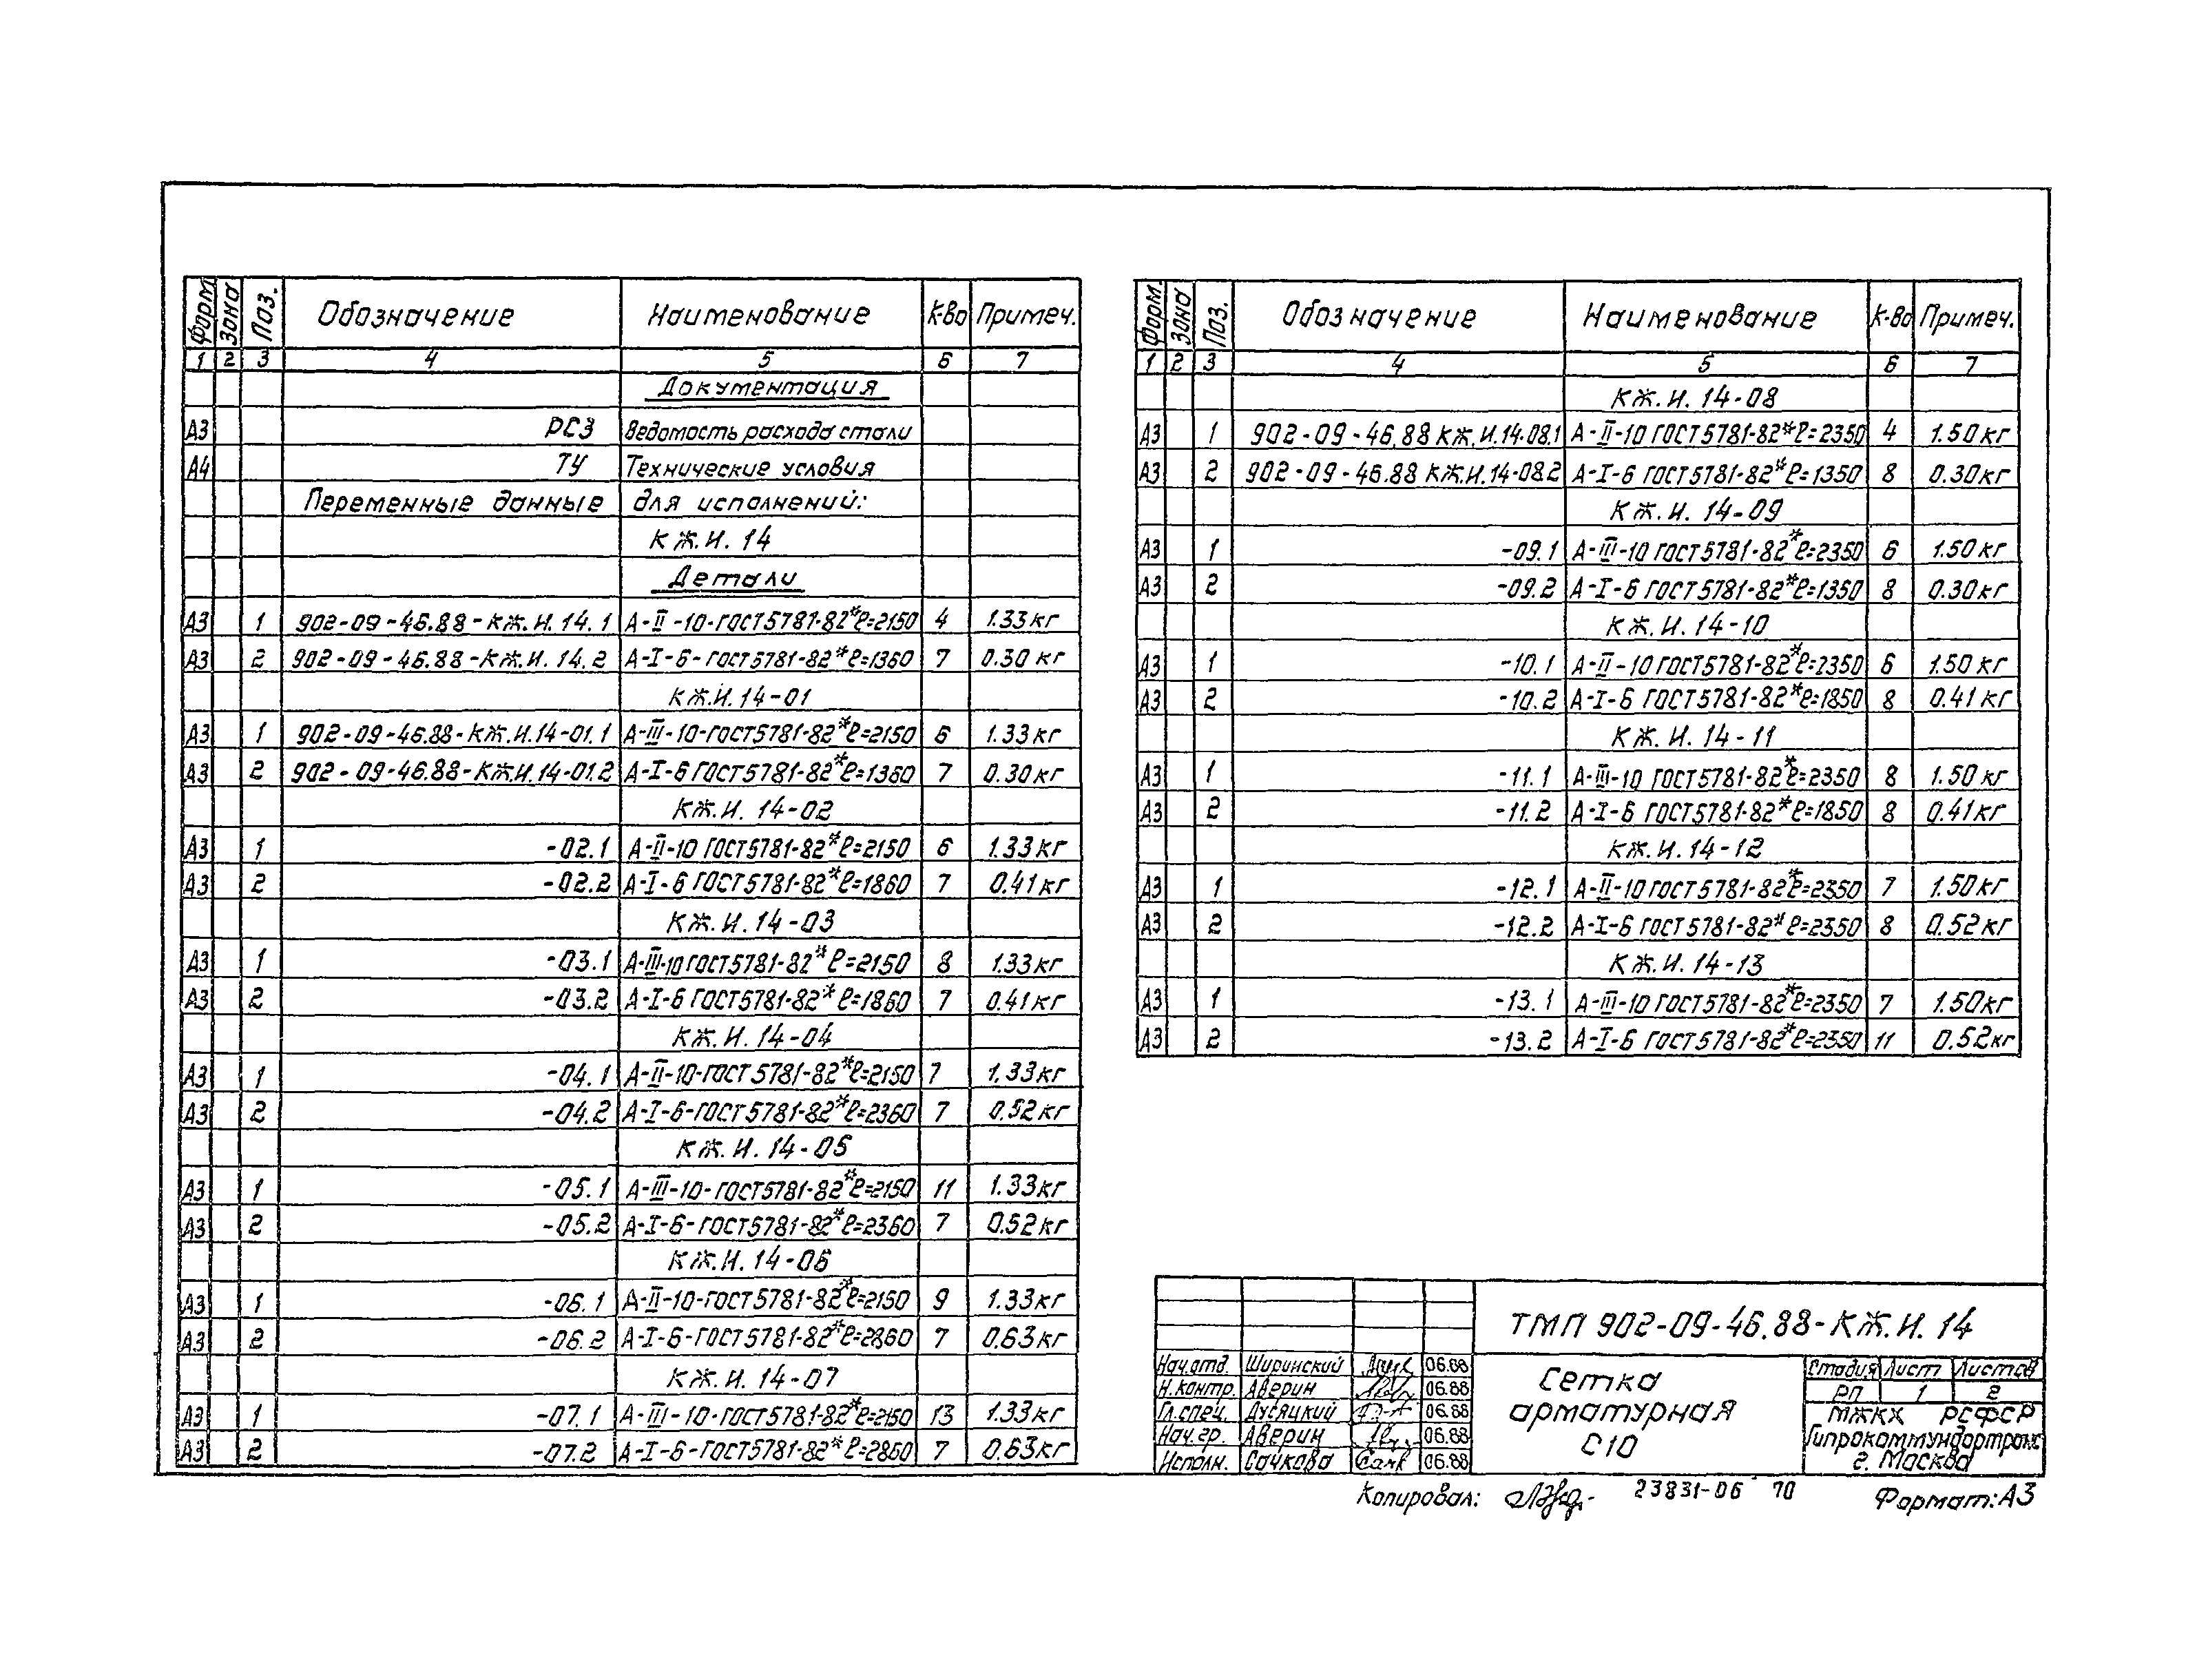 Форм. Зона Поз. Обозначение Наименование К-во Примеч.
1 2 3 4 5 6 7
Документация
А3 РС3 Ведомость расхода стали
А4 ТУ Технические условия
Переменные данные для исполнений:
КЖ.И. 14
Детали
А3 1 902-09-46.88-КЖ.И.14.1 А-II-10-ГОСТ5781-82*ℓ=2150 4 1.33кг
А3 2 902-09-46.88-КЖ.И.14.2 А-I-6-ГОСТ5781-82*ℓ=1360 7 0.30 кг
КЖ.И.14-01
А3 1 902-09-46.88-КЖ.И.14-01.1 А-III-10-ГОСТ5781-82*ℓ=2150 6 1.33кг
А3 2 902-09-46.88-КЖ.И.14-01.2 А-I-6 ГОСТ5781-82*ℓ=1360 7 0.30кг
КЖ.И. 14-02
А3 1 -02.1 А-II-10 ГОСТ5781-82*ℓ=2150 6 1.33кг
А3 2 -02.2 А-I-6 ГОСТ5781-82*ℓ=1860 7 0.41кг
КЖ.И. 14-03
А3 1 -03.1 А-III-10 ГОСТ5781-82*ℓ=2150 8 1.33кг
А3 2 -03.2 А-I-6 ГОСТ5781-82*ℓ=1860 7 0.41кг
КЖ.И. 14-04
А3 1 -04.1 А-II-10-ГОСТ5781-82*ℓ=2150 7 1.33кг
А3 2 -04.2 А-I-6-ГОСТ5781-82*ℓ=2360 7 0.52кг
КЖ.И. 14-05
А3 1 -05.1 А-III-10-ГОСТ5781-82*ℓ=2150 11 1.33кг
А3 2 -05.2 А-I-6-ГОСТ5781-82*ℓ=2360 7 0.52кг
КЖ.И. 14-06
А3 1 -06.1 А-II-10-ГОСТ5781-82*ℓ=2150 9 1.33кг
А3 2 -06.2 А-I-6-ГОСТ5781-82*ℓ=2860 7 0.63кг
КЖ.И. 14-07
А3 1 -07.1 А-III-10-ГОСТ5781-82*ℓ=2150 13 1.33кг
А3 2 -07.2 А-I-6-ГОСТ5781-82*ℓ=2860 7 0.63кг
Форм. Зона Поз. Обозначение Наименование К-во Примеч.
1 2 3 4 5 6 7
КЖ.И. 14-08
А3 1 902-09-46.88 КЖ.И.14-08.1 А-II-10 ГОСТ5781-82*ℓ=2350 4 1.50кг
А3 2 902-09-46.88 КЖ.И.14-08.2 А-I-6 ГОСТ5781-82*ℓ=1350 8 0.30кг
КЖ.И. 14-09
А3 1 -09.1 А-III-10 ГОСТ5781-82*ℓ=2350 6 1.50кг
А3 2 -09.2 А-I-6 ГОСТ5781-82*ℓ=1350 8 0.30кг
КЖ.И. 14-10
А3 1 -10.1 А-II-10 ГОСТ5781-82*ℓ=2350 6 1.50кг
А3 2 -10.2 А-I-6 ГОСТ5781-82*ℓ=1850 8 0.41кг
КЖ.И. 14-11
А3 1 -11.1 А-III-10 ГОСТ5781-82*ℓ=2350 8 1.50кг
А3 2 -11.2 А-I-6 ГОСТ5781-82*ℓ=1850 8 0.41кг
КЖ.И. 14-12
А3 1 -12.1 А-II-10 ГОСТ5781-82*ℓ=2350 7 1.50кг
А3 2 -12.2 А-I-6 ГОСТ5781-82*ℓ=2350 8 0.52кг
КЖ.И. 14-13
А3 1 -13.1 А-III-10 ГОСТ5781-82*ℓ=2350 7 1.50кг
А3 2 -13.2 А-I-6 ГОСТ5781-82*ℓ=2350 11 0.52кг
ТМП 902-09-46.88-КЖ.И. 14
Нач.отд. Ширинский 06.88
Н.контр. Аверин 06.88
Гл.спец. Дусяцкий 06.88
Нач.гр. Аверин 06.88
Исполн. Сачкова 06.88
Сетка
арматурная
С10
Стадия Лист Листов
РП 1 2
МЖКХ РСФСР
Гипрокоммундортранс
г. Москва
Копировал: 23831-06 10 Формат: А3